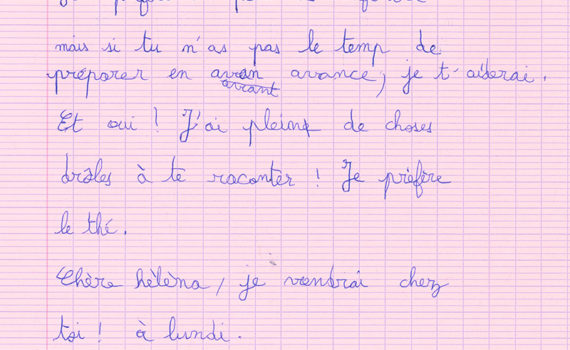 mais si tu n'as pas le temp de
préparer en avan avance, je t'aiderai.
avant
Et oui ! J'ai pleins de choses
drôles à te raconter ! Je préfère
le thé.
Chère hèlèna, je vendrai chez
toi ! à lundi.